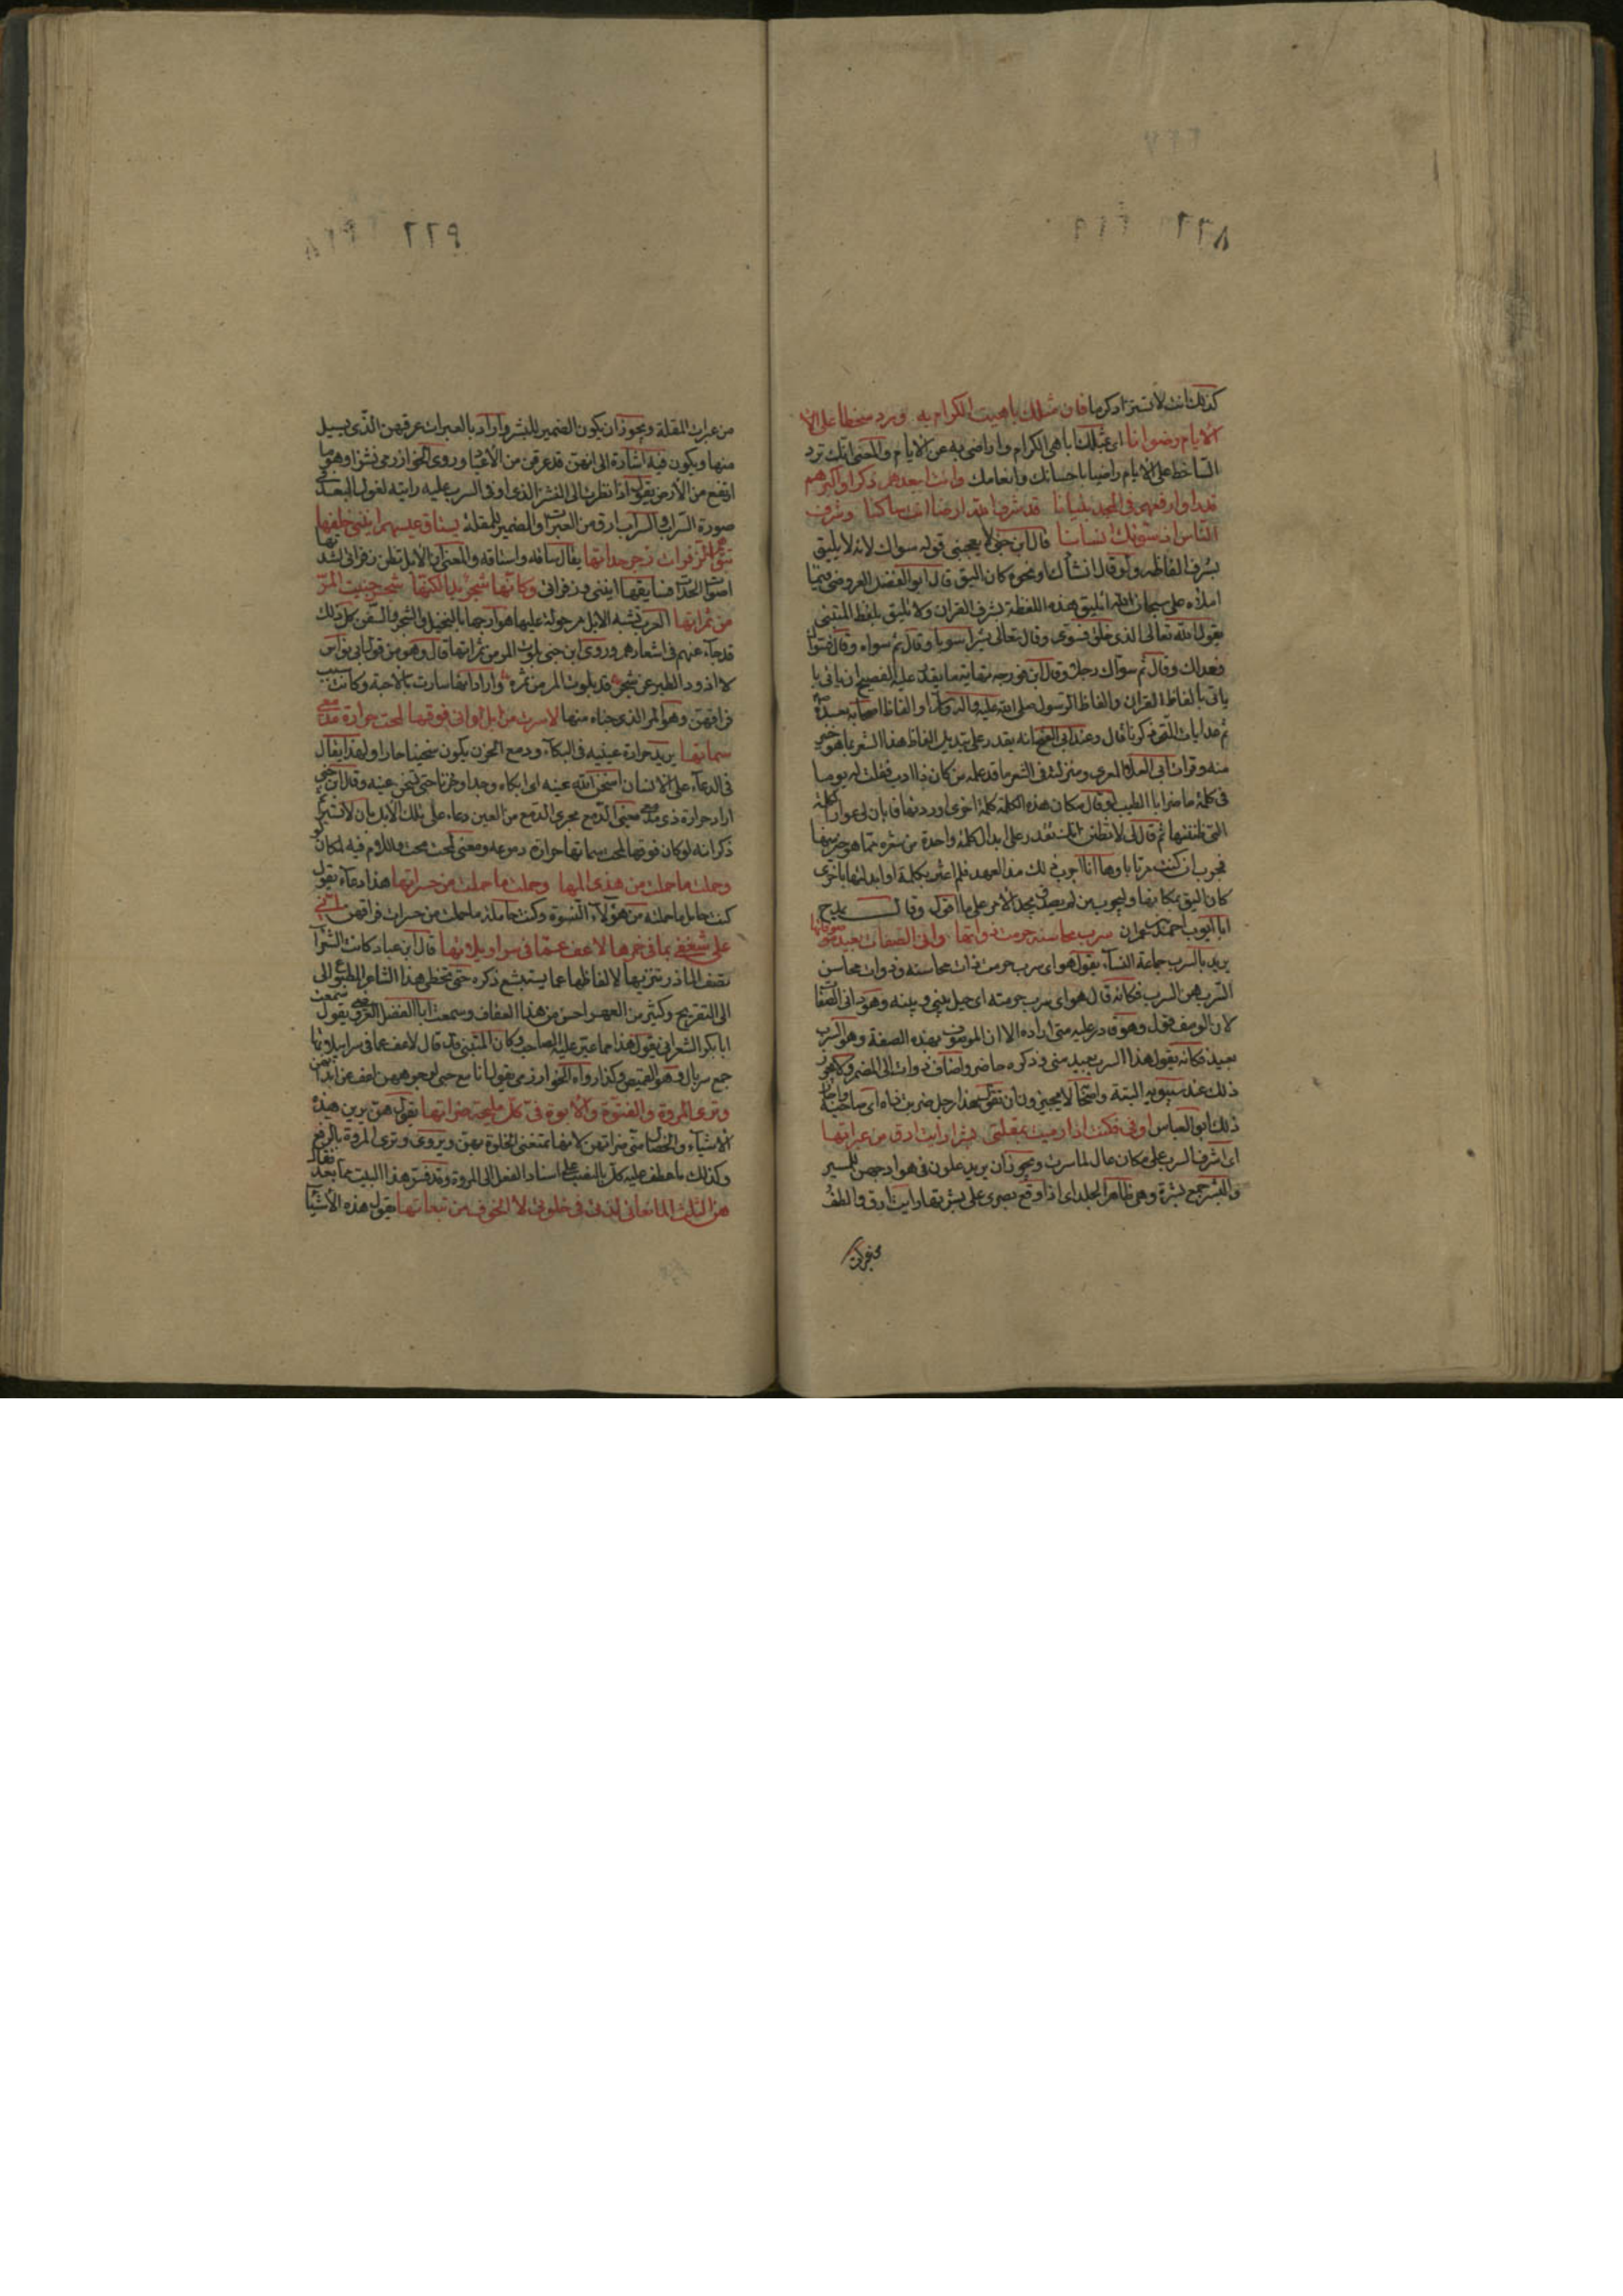 كذلك انت لا تستزاد كرما فان مثلك باهيت الكرام به ورد سخطا على الا
الايام رضوانا اى بمثلك اباهى الكرام واراضى به عن الايام والمعنى انك ترد
الساخط على الايام راضيا باحسانك وانعامك وانت ابعدهم ذكرا واكبرهم
قدرا وارفعهم فى المجد بنيانا قد شرف الله ارضا انت ساكنها وشرف
الناس اذ سواك انسانا قال ابن جنى لا يعجبنى قوله سواك لانه لا يليق
بشرف الفاظه ولو قال انشاك او نحوه كان اليق قال ابو الفضل العروضى فيما
املاه على سبحان الله اتليق هذه اللفظة بشرف القران ولا تليق بلفظ المتنبى
يقول الله تعالى الذى خلق فسوى وقال تعالى بشرا سويا وقال ثم سواه وقال فسواك
فعدلك وقال ثم سواك رجلا وقال ابن فورجه نهاية ما يقدر عليه الفصيح ان ياتى با
ياتى بالفاظ القران والفاظ الرسول صلى الله عليه واله والفاظ اصحابه بعده
ثم عد ايات التى ذكرنا قال وعند ابى الفتح انه يقدر على تبديل الفاظ هذا الشعر بما هو خير
منه وقرات على ابى العلا المعرى ومنزلته فى الشعر ما قد علمه من كان ذا ادب فقلت له يوما
فى كلمة ما ضر ابا الطيب لو قال مكان هذه الكلمة كلمة اخرى اوردتها فابان لى عوار الكلمة
التى ظننتها ثم قال لى لا تظنن انك تقدر على ابدال كلمة واحدة من شعره بما هو خير منها
فجرب ان كنت مرتابا وها انا اجرب ذلك منذ العهد فلم اعثر بكلمة لو ابدلتها باخرى
كان اليق بمكانها وليجرب من لم يصدق يجد الامر على ما اقول وقال يمدح
ابا ايوب احمد بن عمران سرب محاسنه حرمت ذواتها دانى الصفات بعيد موصوفاتها
يريد بالسرب جماعة النساء يقول هواى سرب حرمت ذات محاسنه وذوات محاسن
السرب هن السرب فكانه قال هواى سرب حرمته اى حيل بينى وبينه وهو دانى الصفات
لان الوصف قول وهو قادر عليه متى اراده الا ان الموصوف بهذه الصفة وهو السرب
بعيد فكانه يقول هذا السرب بعيد منى وذكره حاضر واضاف ذوات الى المضمر ولا يجوز
ذلك عند سيبويه البتة واصحابنا لا يجيزون ان تقول هذا رجل ضربت ذاه اى صاحبه واجاز
ذلك ابو العباس اوفى فكنت اذا رميت بمقلتى بشرا رايت ارق من عبراتها
اى اشرف السرب على مكان عال لما سرت ويجوز ان يريد علون فى هوادجهن للمسير
والبشر جمع بشرة وهى ظاهر الجلد اى اذا وقع بصرى على بشرتها رايت ارق والطف
من عبرات المقلة ويجوز ان يكون الضمير للبشر واراد بالعبرات عرقهن الذى يسيل
منها ويكون فيه اشارة الى انهن قد عرقن من الاعياء وروى الخوارزمى نشزا وهو ما
ارتفع من الارض يقول اذا نظرت الى النشز الذى اوفى السرب عليه رايته لقول البعد فى
صورة السراب والسراب ارق من العبرات والضمير للمقلة يستاق عيسهم انينى خلفها
تتوهم الزفرات زجر حداتها يقال ساقه واستاقه والمعنى ان الابل تظن زفراتى لشدتها
اصوات الحداة فسايقها انينى وزفراتى وكانها شجر بدا لكنها شجر جنيت المر
من ثمراتها العرب تشبه الابل مرحولة عليها هوادجها بالنخيل والشجر والسفن كل ذلك
قد جاء عنهم فى اشعارهم وروى ابن جنى بلوت المر من ثمراتها قال وهو من قول ابى نواس
لا اذود الطير عن شجر قد بلوت المر من ثمره واراد انها سارت بالاحبة وكانت سبب
فراقهن وهو المر الذى جناه منها لا سرت من ابل لو انى فوقها لمحت حرارة مدمعى
سماتها يريد حرارة عينيه فى البكاء ودمع الحزن يكون سخينا حارا ولهذا يقال
فى الدعاء على الانسان اسخن الله عينه اى ابكاه وجدا وحزنا حتى تسخن عينه وقال ابن جنى
اراد حرارة ذى مدمعى يعنى الدمع مجرى الدمع من العين دعاء على تلك الابل بان لا تسير ثم
ذكر انه لو كان فوقها لمحت سماتها حرارة دموعه ومعنى لمحت محت واللام فيه لمكان لو
وحملت ما حملت من هذى المها وحملت ما حملت من حسراتها هذا دعاء يقول
كنت حامل ما حملته من هؤلاء النسوة وكنت حاملة ما حملت من حسرات فراقهن انى
على شغفى بما فى خمرها لاعف عما فى سراويلاتها قال ابن عباد كانت الشعرا
تصف المازر تنزيها لالفاظها عما يستبشع ذكره حتى تخطى هذا الشاعر المطبوع الى
الى التصريح وكثير من العهر احسن من هذا العفاف وسمعت ابا الفضل العروضى يقول سمعت
ابا بكر الشعرانى يقول هذا مما عير عليه الصاحب وكان المتنبى قد قال لاعف عما فى سرابيلاتها
جمع سربال وهو القميص وكذا رواه الخوارزمى يقول انا مع حبى لوجوههن اعف عن ابدانهن
وترى المروة والفتوة والابوة فى كل مليحة ضراتها يقول هن يرين هذه
الاشياء والخصال منى ضراتهن لانها تمنعنى الخلوة بهن ويروى وترى المروة بالرفع
وكذلك ما عطف عليه كل بالنصب على اسناد الفعل الى المروة وقد فسر هذا البيت بما بعده فقال
هن الثلاث المانعاتى لذتى فى خلوتى لا الخوف من تبعاتها يقول هذه الاشيا